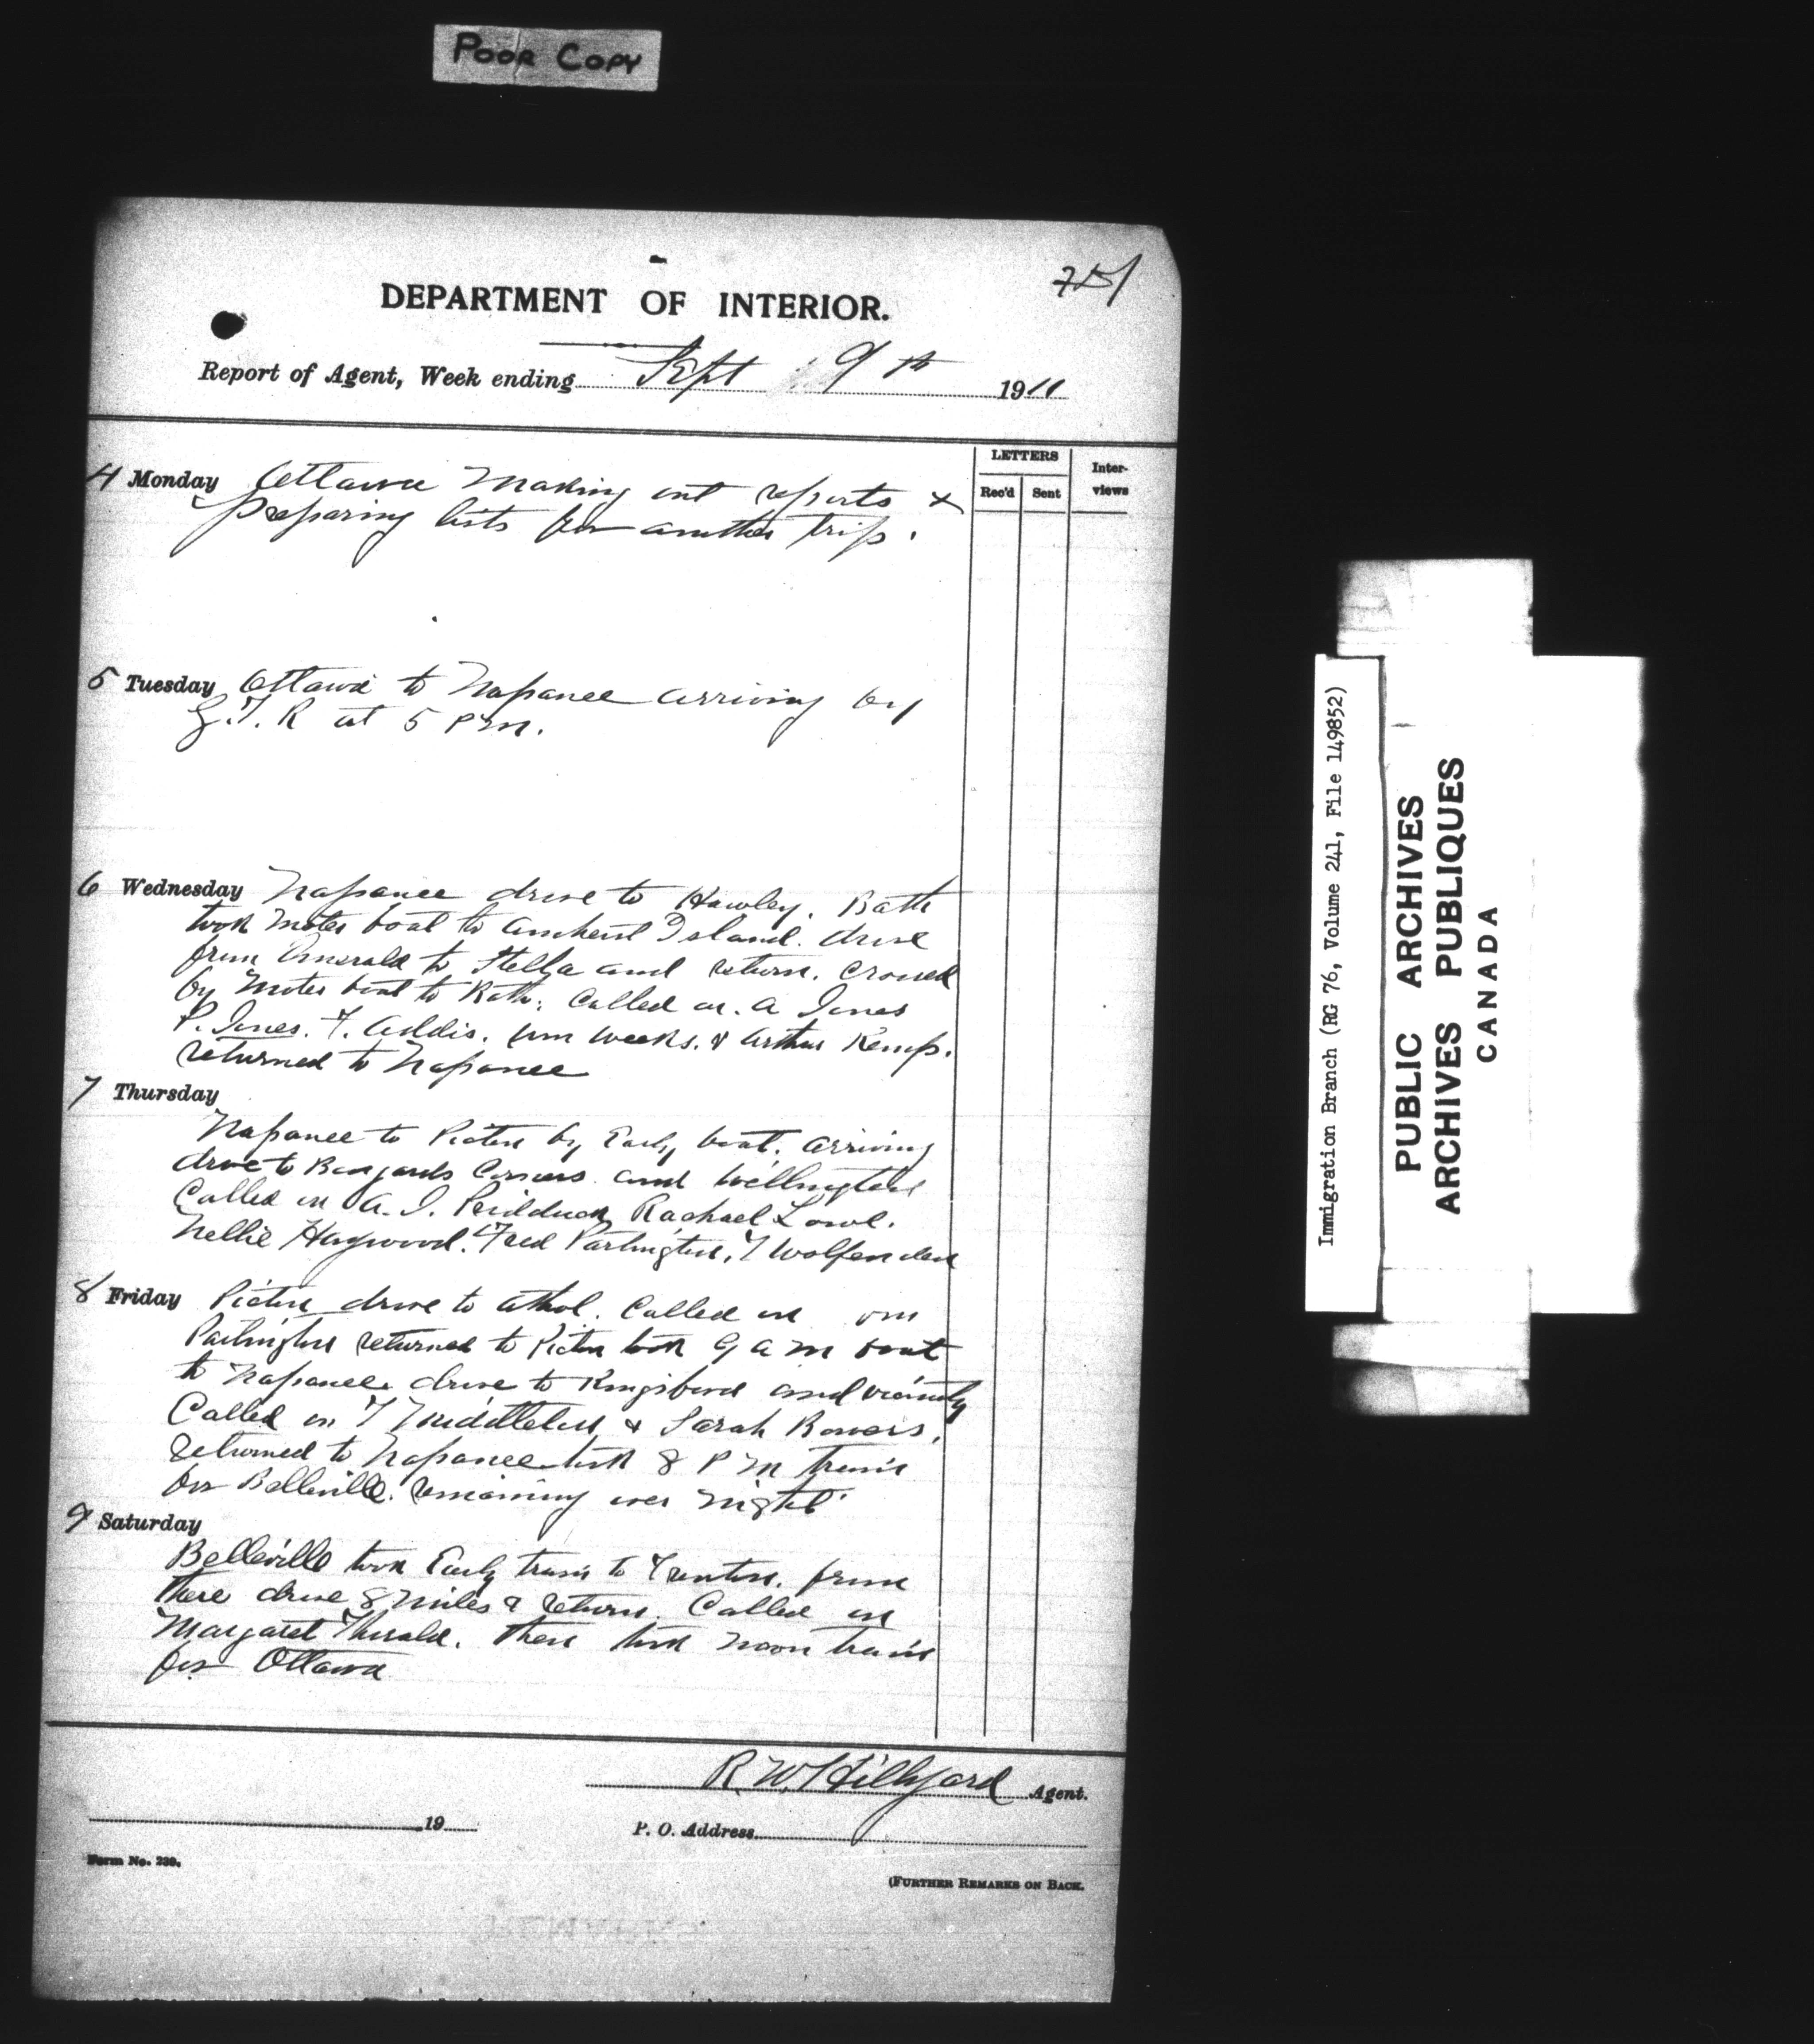 POOR COPY
DEPARTMENT OF INTERIOR.
Report of Agent, Week ending Sept 9th 1911
LETTERS
Rec'd Sent
Inter-
views
4 Monday Ottawa Making out reports &
preparing lists for another trip.
5 Tuesday Ottawa to Napanee arriving by
G.T.R at 5 PM.
6 Wednesday Napanee drive to Hawley. Bath
took motor boat to Amherst Island. drive
from Emerald to Stella and return. crossed
by motor boat to Bath. Called on. A Jones
P. Jones. F. Addis. Wm Weeks. & Arthur Kemp.
returned to Napanee
7 Thursday
Napanee to Picton by Early boat. arriving
drive to Bongards Corners and Wellington
Called on A. J. Rachael Lowe.
Nellie Haywood. Fred Partington. F Wolfenden
8 Friday Picton drive to Athol. Called on Wm
Partington returned to Picton took 9 a m boat
to Napanee. drive to Kingsford and vicinity
Called on F Middleton & Sarah Bowers.
returned to Napanee took 8 P M train
for Belleville. remaining over night
9 Saturday
Belleville took Early train to Trenton. from
there drive 8 miles & return. Called on
Margaret. then took noon train
for Ottawa
R. W. Hillyard Agent.
19
P. O. Address
Form No. 239.
(FURTHER REMARKS ON BACK.
Immigration Branch (RG 76, Volume 241, File 149852)
PUBLIC ARCHIVES
ARCHIVES PUBLIQUES
CANADA